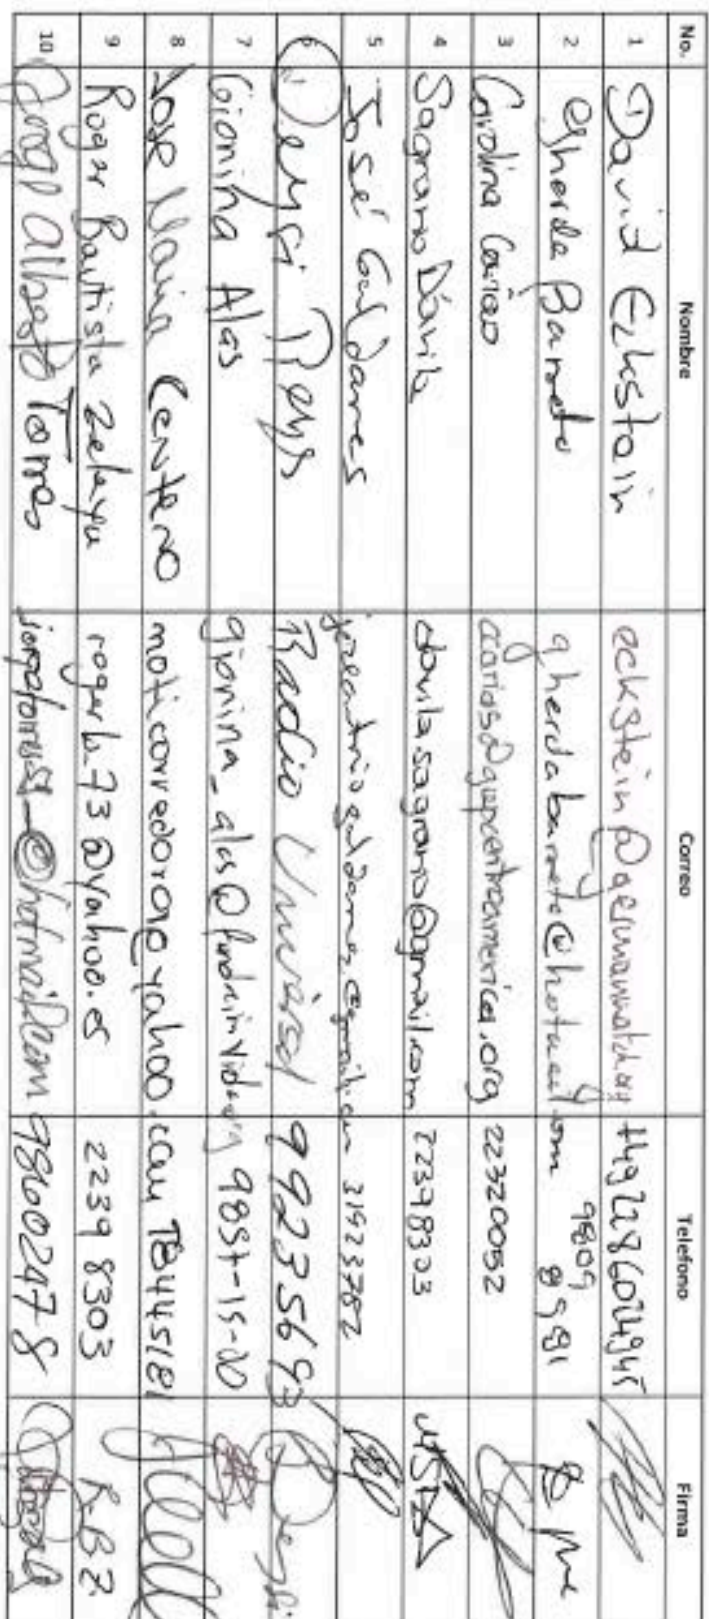 No. Nombre Correo Telefono Firma
1 David Eckstein eckstein@germanwatch.org +492286024945
2 Gherda Barreto gherdabarreto@hotmail.com 9809 8991
3 Carolina Carías ccarias@gwpcentroamerica.org 22320052
4 Sagrario Dávila davila.sagrario@gmail.com 22398303
5 José Galdames 31923782
6 Deysi Reyes Radio Universal 99235693 Deysi
7 Gionina Alas gionina_alas@fundacionvida.org 9857-15-00
8 Jose Maria Centeno 78445181
9 Roger Bautista Zelaya rogerb73@yahoo.es 2239 8303 R.B.Z.
10 Jorge Alberto Torres 98600247-8